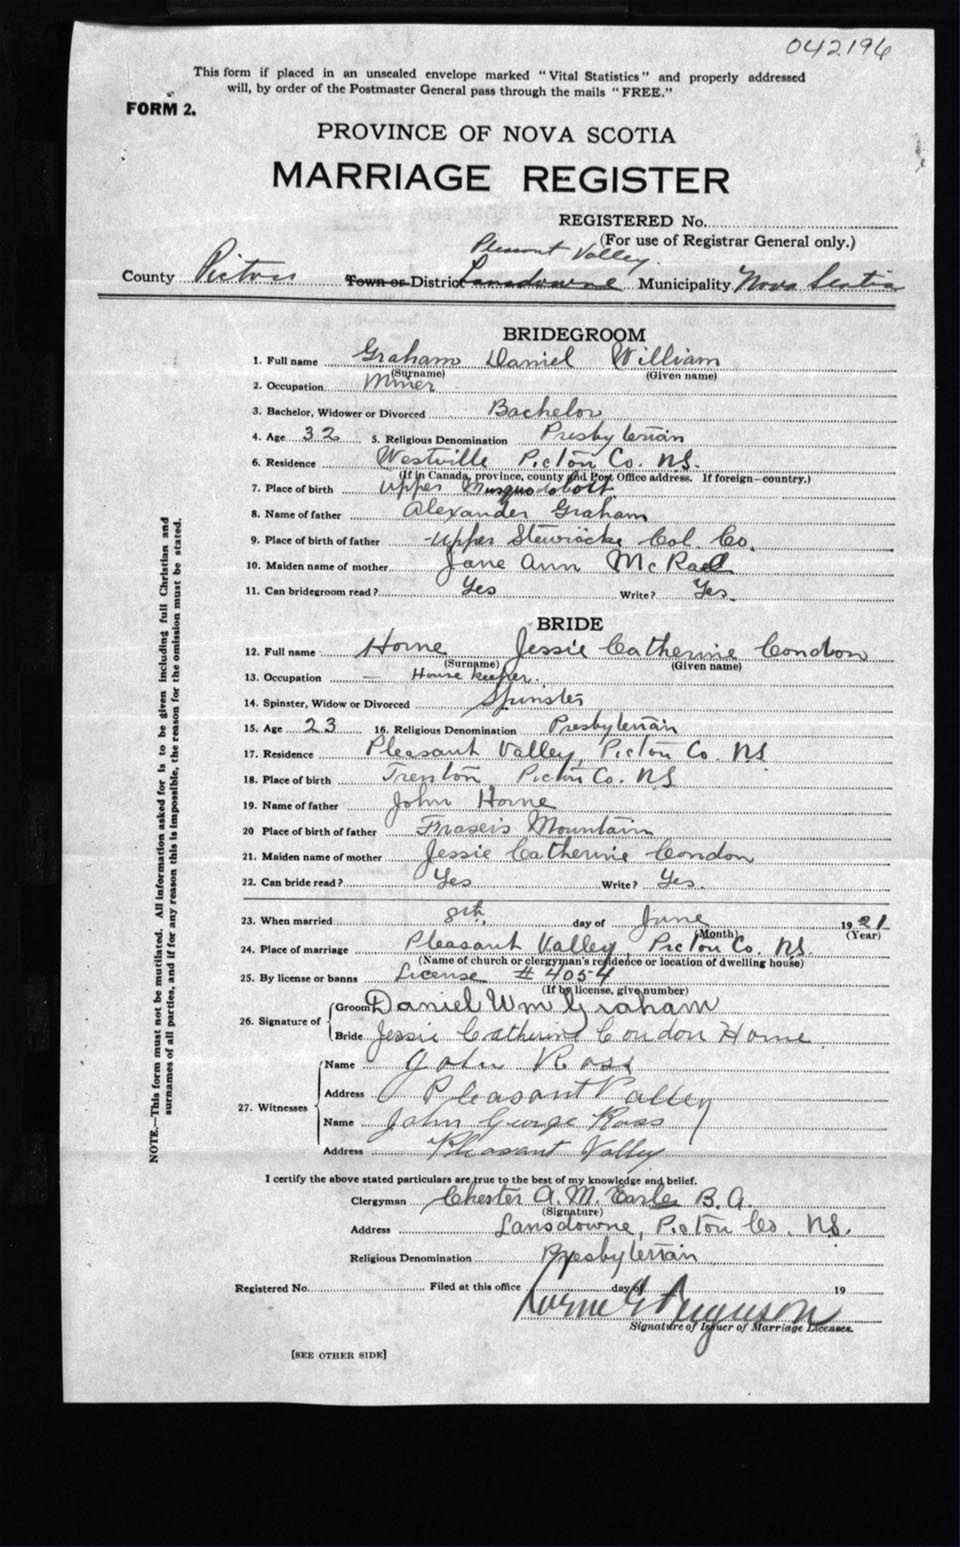 042196
This form if placed in an unsealed envelope marked "Vital Statistics" and properly addressed
will, by order of the Postmaster General pass through the mails "FREE."
FORM 2.
PROVINCE OF NOVA SCOTIA
MARRIAGE REGISTER
REGISTERED No.
(For use of Registrar General only.)
Pleasant Valley
County Pictou Town or District Lansdowne Municipality Nova Scotia
BRIDEGROOM
1. Full name Graham Daniel William
(Surname) (Given name)
2. Occupation Miner
3. Bachelor, Widower or Divorced Bachelor
4. Age 32 5. Religious Denomination Presbyterian
6. Residence Westville Pictou Co. N.S.
(If in Canada, province, county and Post Office address. If foreign—country.)
7. Place of birth Upper Musquodoboit
8. Name of father Alexander Graham
9. Place of birth of father Upper Stewiacke Col. Co.
10. Maiden name of mother Jane Ann McRae
11. Can bridegroom read? Yes Write? Yes
BRIDE
12. Full name Horne Jessie Catherine Condon
(Surname) (Given name)
13. Occupation — House keeper.
14. Spinster, Widow or Divorced Spinster
15. Age 23 16. Religious Denomination Presbyterian
17. Residence Pleasant Valley, Pictou Co. N.S
18. Place of birth Trenton Pictou Co. N.S
19. Name of father John Horne
20 Place of birth of father Frasers Mountain
21. Maiden name of mother Jessie Catherine Condon
22. Can bride read? Yes Write? Yes.
23. When married 8th day of June 1921
(Month) (Year)
24. Place of marriage Pleasant Valley, Pictou Co. N.S.
(Name of church or clergyman's residence or location of dwelling house)
25. By license or banns License # 4054
(If by license, give number)
26. Signature of Groom Daniel Wm Graham
Bride Jessie Catherine Condon Horne
27. Witnesses Name John Ross
Address Pleasant Valley
Name John George Ross
Address Pleasant Valley
I certify the above stated particulars are true to the best of my knowledge and belief.
Clergyman Chester A. M. Earle B. A.
(Signature)
Address Lansdowne, Pictou Co. N.S.
Religious Denomination Presbyterian
Registered No. Filed at this office day of 19
Ferguson
Signature of Issuer of Marriage Licenses.
[SEE OTHER SIDE]
NOTE.—This form must not be mutilated. All information asked for is to be given including full Christian and
surnames of all parties, and if for any reason this is impossible, the reason for the omission must be stated.